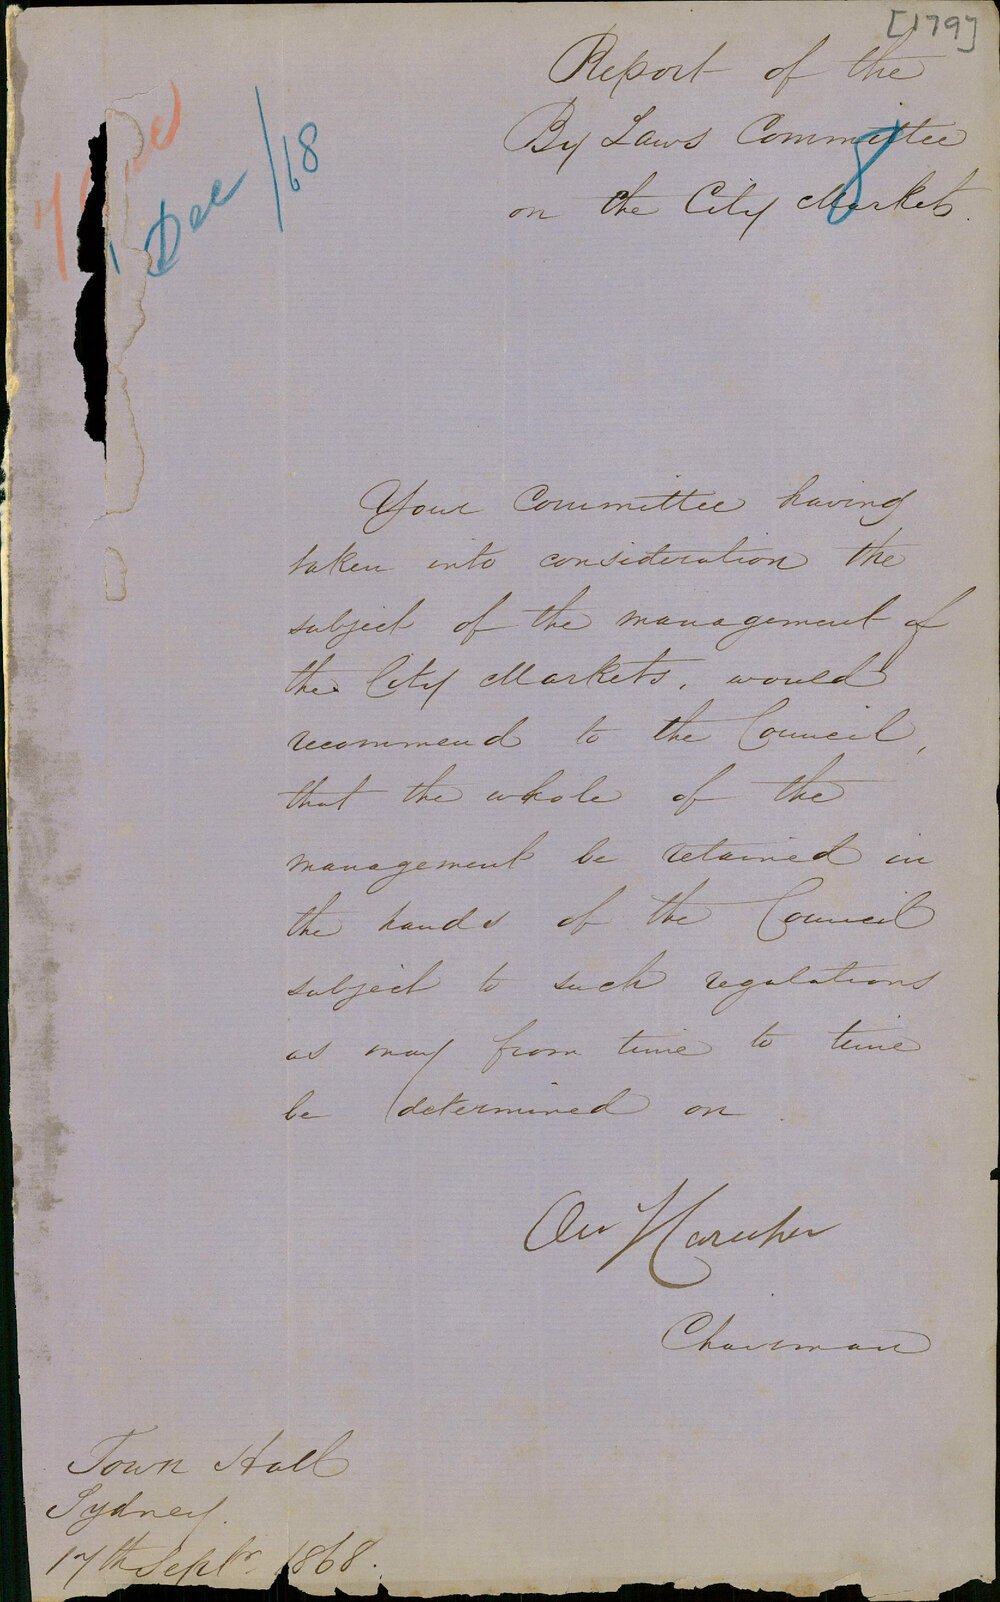 [179]
Report of the
By Laws Committee
on the City Markets.
8
Dec /68
Your Committee having
taken into consideration the
subject of the management of
the City Markets, would
recommend to the Council,
that the whole of the
management be retained in
the hands of the Council
subject to such regulations
as may from time to time
be determined on
Chairman
Town Hall
Sydney.
17th Septr. 1868.